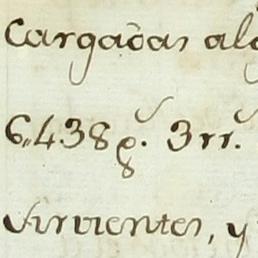 Cargadas alg
6,,438 p.s 3 rr.s
sirvientes, y